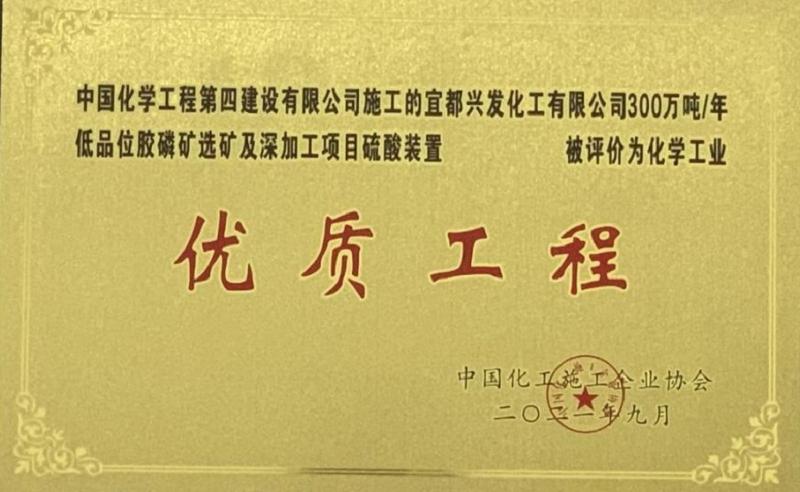 中国化学工程第四建设有限公司施工的宜都兴发化工有限公司300万吨/年
低品位胶磷矿选矿及深加工项目硫酸装置 被评价为化学工业
优质工程
中国化工施工企业协会
二〇二一年九月